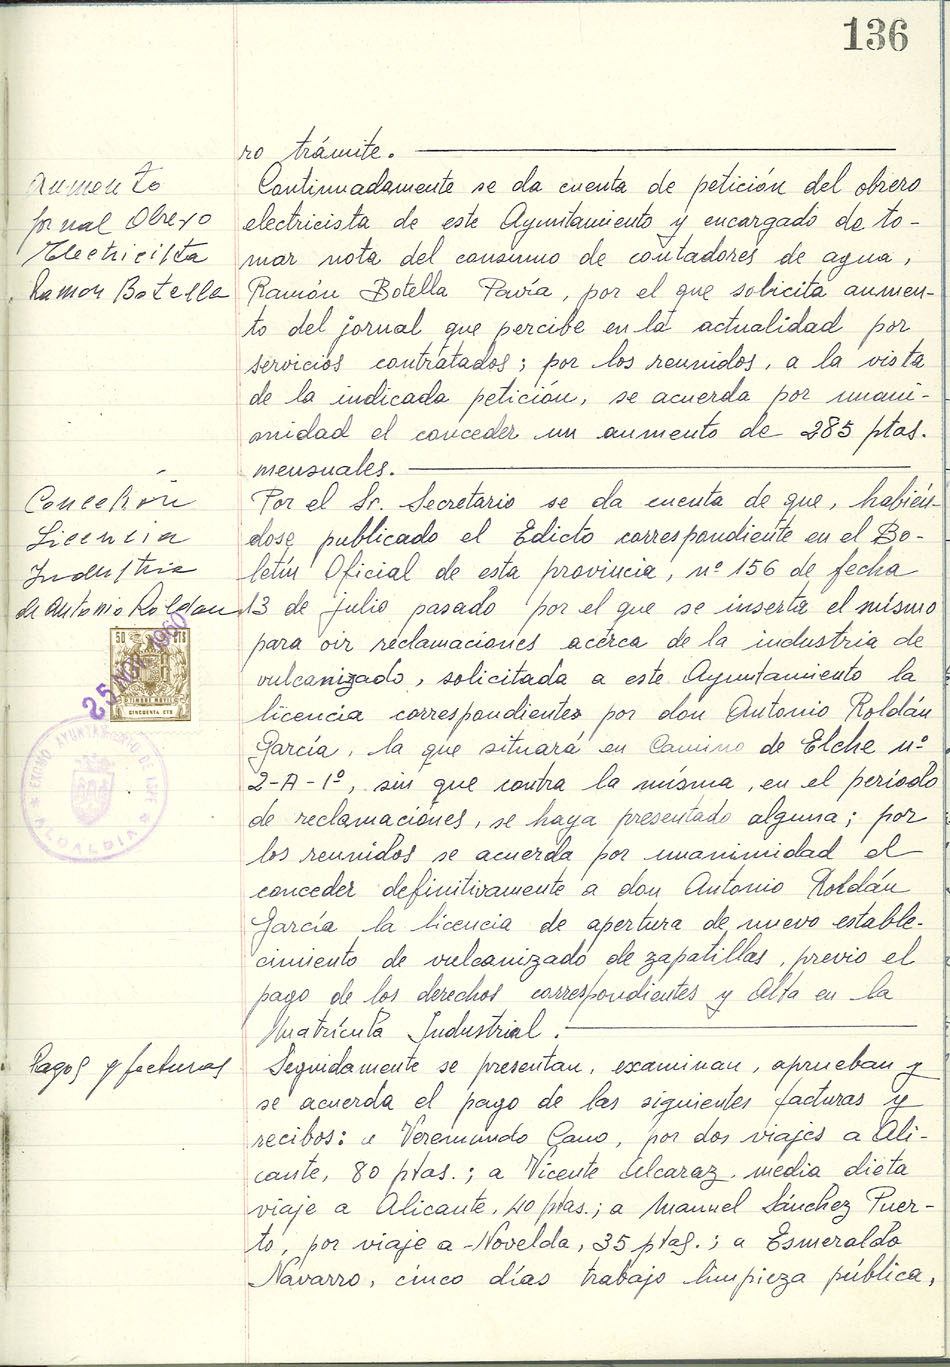 136
ro trámite.
Aumento
jornal Obrero
Electricista
Ramon Botella
Continuadamente se da cuenta de petición del obrero
electricista de este Ayuntamiento y encargado de to-
mar nota del consumo de contadores de agua,
Ramón Botella Pavía, por el que solicita aumen-
to del jornal que percibe en la actualidad por
servicios contratados; por los reunidos, a la vista
de la indicada petición, se acuerda por unani-
midad el conceder un aumento de 285 ptas.
mensuales.
Conceción
Licencia
Industria
de Antonio Roldan
Por el Sr. Secretario se da cuenta de que, habién-
dose publicado el Edicto correspondiente en el Bo-
letín Oficial de esta provincia, nº 156 de fecha
13 de julio pasado por el que se inserta el mismo
para oir reclamaciones acerca de la industria de
vulcanizado, solicitada a este Ayuntamiento la
licencia correspondientes por don Antonio Roldán
García, la que situará en Camino de Elche nº
2-A-1º, sin que contra la misma, en el período
de reclamaciones, se haya presentado alguna; por
los reunidos se acuerda por unanimidad el
conceder definitivamente a don Antonio Roldán
García la licencia de apertura de nuevo estable-
cimiento de vulcanizado de zapatillas, previo el
pago de los derechos correspondientes y Alta en la
Matrícula Industrial.
50 CTS
TIMBRE MOVIL
CINCUENTA CTS
25 NOV. 1960
EXCMO. AYUNTAMIENTO DE ASPE
ALCALDIA
Pagos y facturas
Seguidamente se presentan, examinan, aprueban y
se acuerda el pago de las siguientes facturas y
recibos: a Veremundo Cano, por dos viajes a Ali-
cante, 80 ptas.; a Vicente Alcaraz, media dieta
viaje a Alicante, 40 ptas.; a Manuel Sánchez Puer-
to, por viaje a Novelda, 35 ptas.; a Esmeraldo
Navarro, cinco días trabajo limpieza pública,